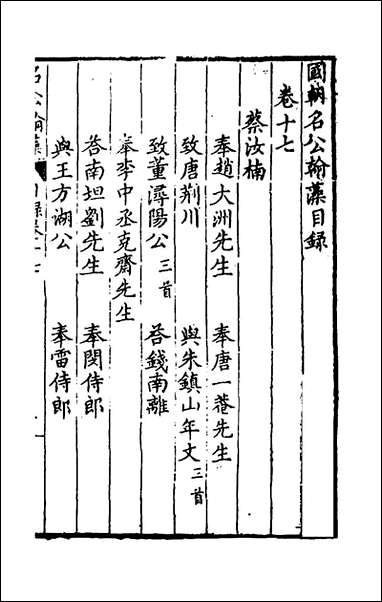 國朝名公翰藻目錄
卷十七
蔡汝楠
奉趙大洲先生 奉唐一菴先生
致唐荊川 與朱鎮山年丈三首
致董潯陽公三首 荅錢南離
奉李中丞克齋先生
荅南坦劉先生 奉閔侍郎
與王方湖公 奉雷侍郎
名公翰藻